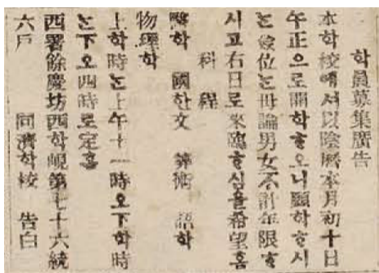 學員募集廣告
本學校에셔以陰曆本月初十日
午正으로開學ᄒᆞ오니願學ᄒᆞ시
는僉位는毋論男女不計年限ᄒᆞ
시고右日로來臨ᄒᆞ심을希望홈
科程
醫학 國한文 算術 語학
物理학
上學時는上午十一時오下學時
는下오四時로定홈
西署餘慶坊西學峴第七十六統
六戶 同濟學校 告白